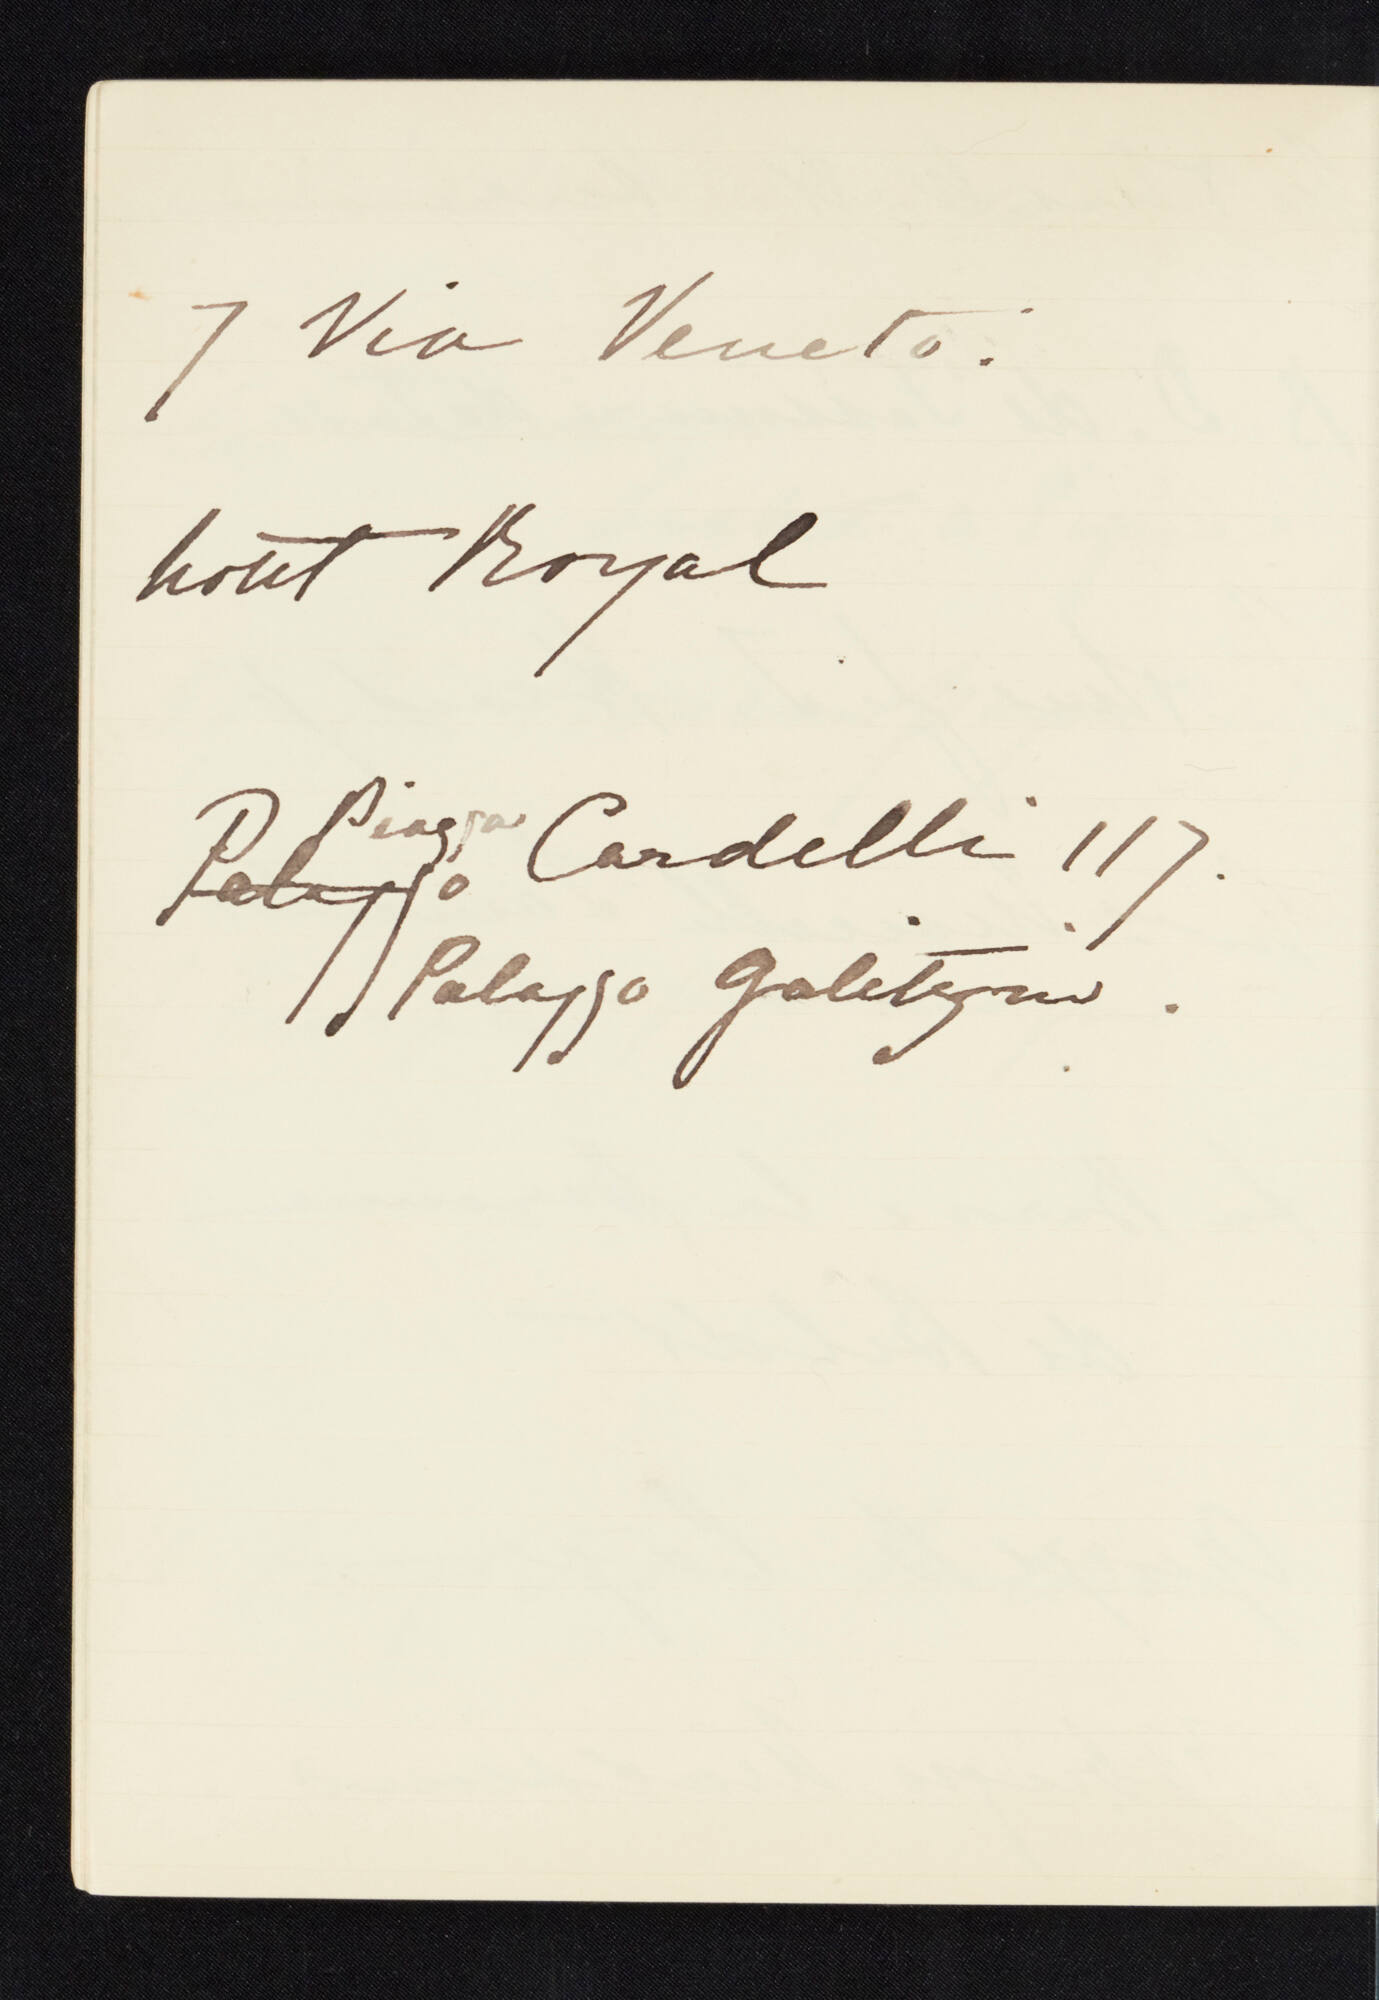 7 Via Veneto.
hotel Royal
Piazza
Palazzo Cardelli 117.
Palazzo Galitzin.